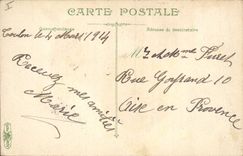 I
CARTE POSTALE
Correspondance
Adresse du destinataire
Toulon le 4 Mars 1914
Recevez
mes amitiés
Marie
Mr et Mme
Rue 10
Aix en Provence